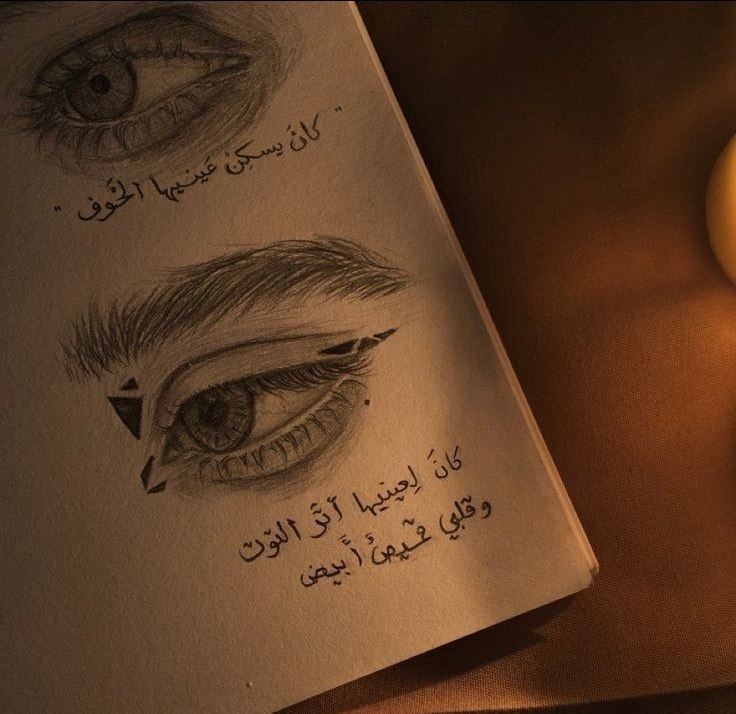 " كانَ يسكِنُ عَينيها الخَوف "
كانَ لِعينيها أثَر التوت
وقلبي قميصٌ أَبيض